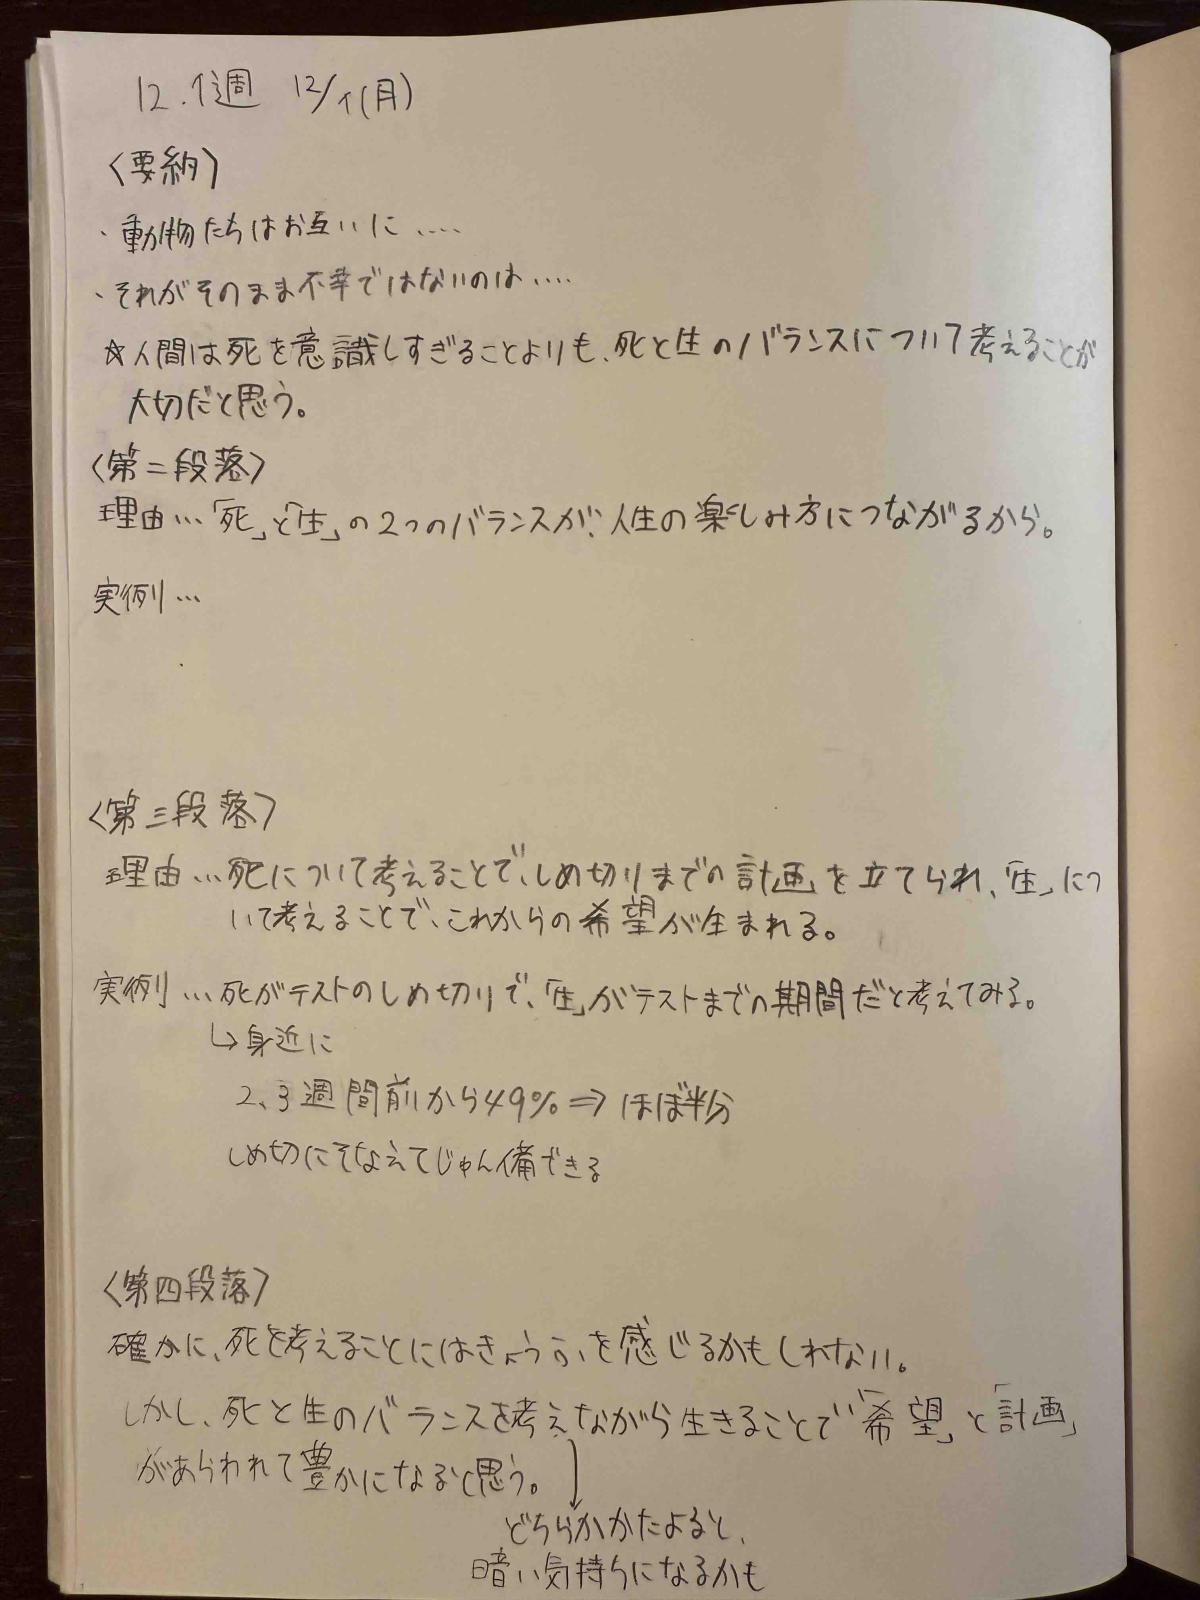 12.1週 12/1(月)
〈要約〉
・動物たちはお互いに.....
・それがそのまま不幸ではないのは....
☆人間は死を意識しすぎることよりも、死と生のバランスについて考えることが
大切だと思う。
〈第二段落〉
理由…「死」と「生」の2つのバランスが、人生の楽しみ方につながるから。
実例…
〈第三段落〉
理由…死について考えることで、しめ切りまでの「計画」を立てられ、「生」につ
いて考えることで、これからの希望が生まれる。
実例…死がテストのしめ切りで、「生」がテストまでの期間だと考えてみる。
↳身近に
2、3週間前から49%⇒ほぼ半分
しめ切にそなえてじゅん備できる
〈第四段落〉
確かに、死を考えることにはきょうふを感じるかもしれない。
しかし、死と生のバランスを考えながら生きることで「希望」と「計画」
があらわれて豊かになると思う。
どちらかかたよると、
暗い気持ちになるかも